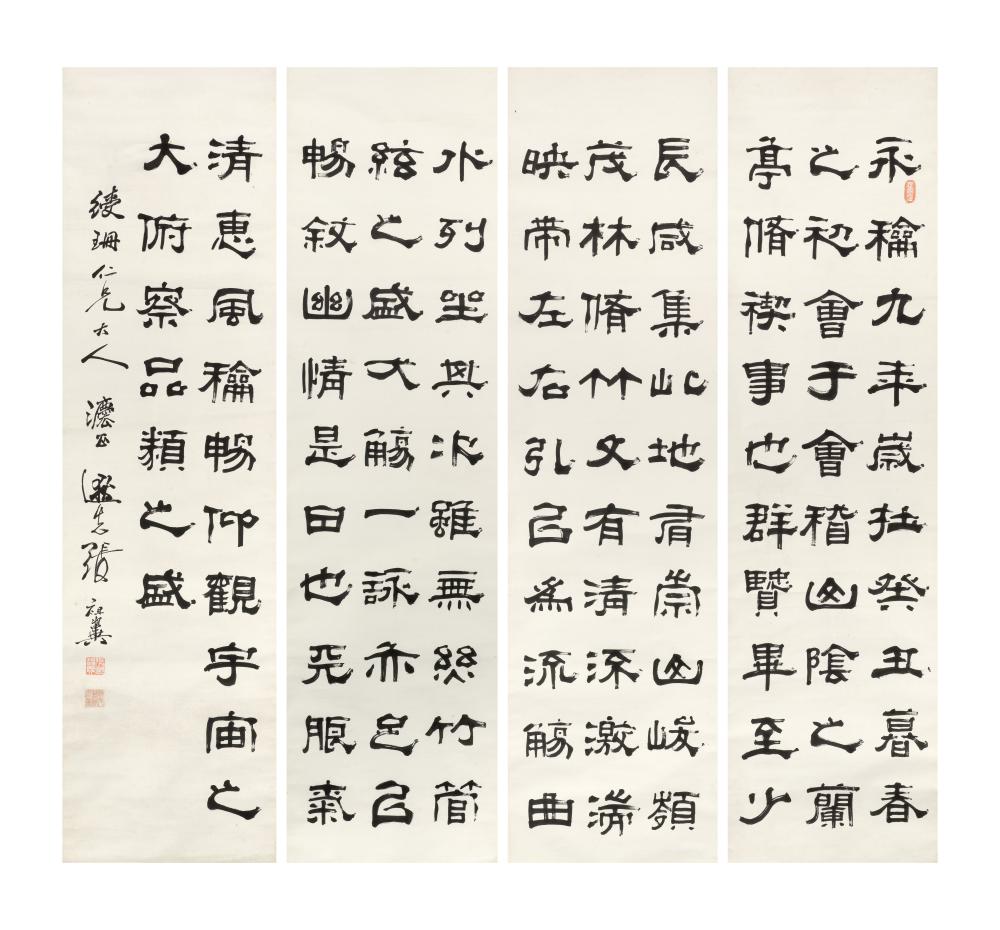 永龢九年歲在癸丑暮春
之初會于會稽山陰之蘭
亭脩禊事也群賢畢至少
長咸集此地有崇山峻嶺
茂林脩竹又有清流激湍
映帶左右引以為流觴曲
水列坐其次雖無絲竹管
絃之盛一觴一詠亦足以
暢敘幽情是日也天朗氣
清惠風龢暢仰觀宇宙之
大俯察品類之盛
綬珊仁兄大人 灋正 張祖翼